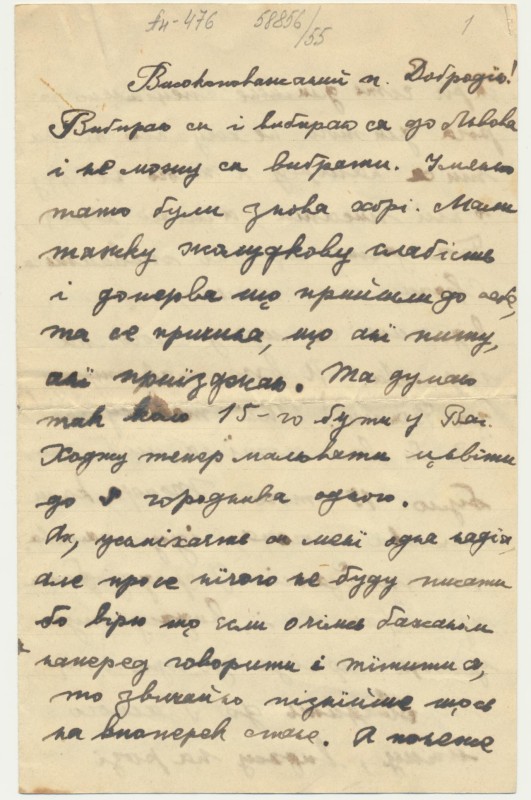 Ян-476 58856/55 1
Високоповажаний п. Добродію!
Вибираю ся і вибираю ся до Львова
і не можу ся вибрати. Іменно
тато були знова хорі. Мали
тяжку жолудкову слабість
і доперва що прийшли до себе,
та се причина, що ані пишу,
ані приїзджаю. Та думаю
так коло 15-го бути у Вас.
Ходжу тепер мальвати цьвіти
до городника одного.
Ах, усміхаєть ся мені одна надія,
але про се нічого не буду писати
бо вірю що если очімсь бажанім
наперед говорити і тішити ся,
то звичайно пізнійше щось
на впоперек стане. А понеже